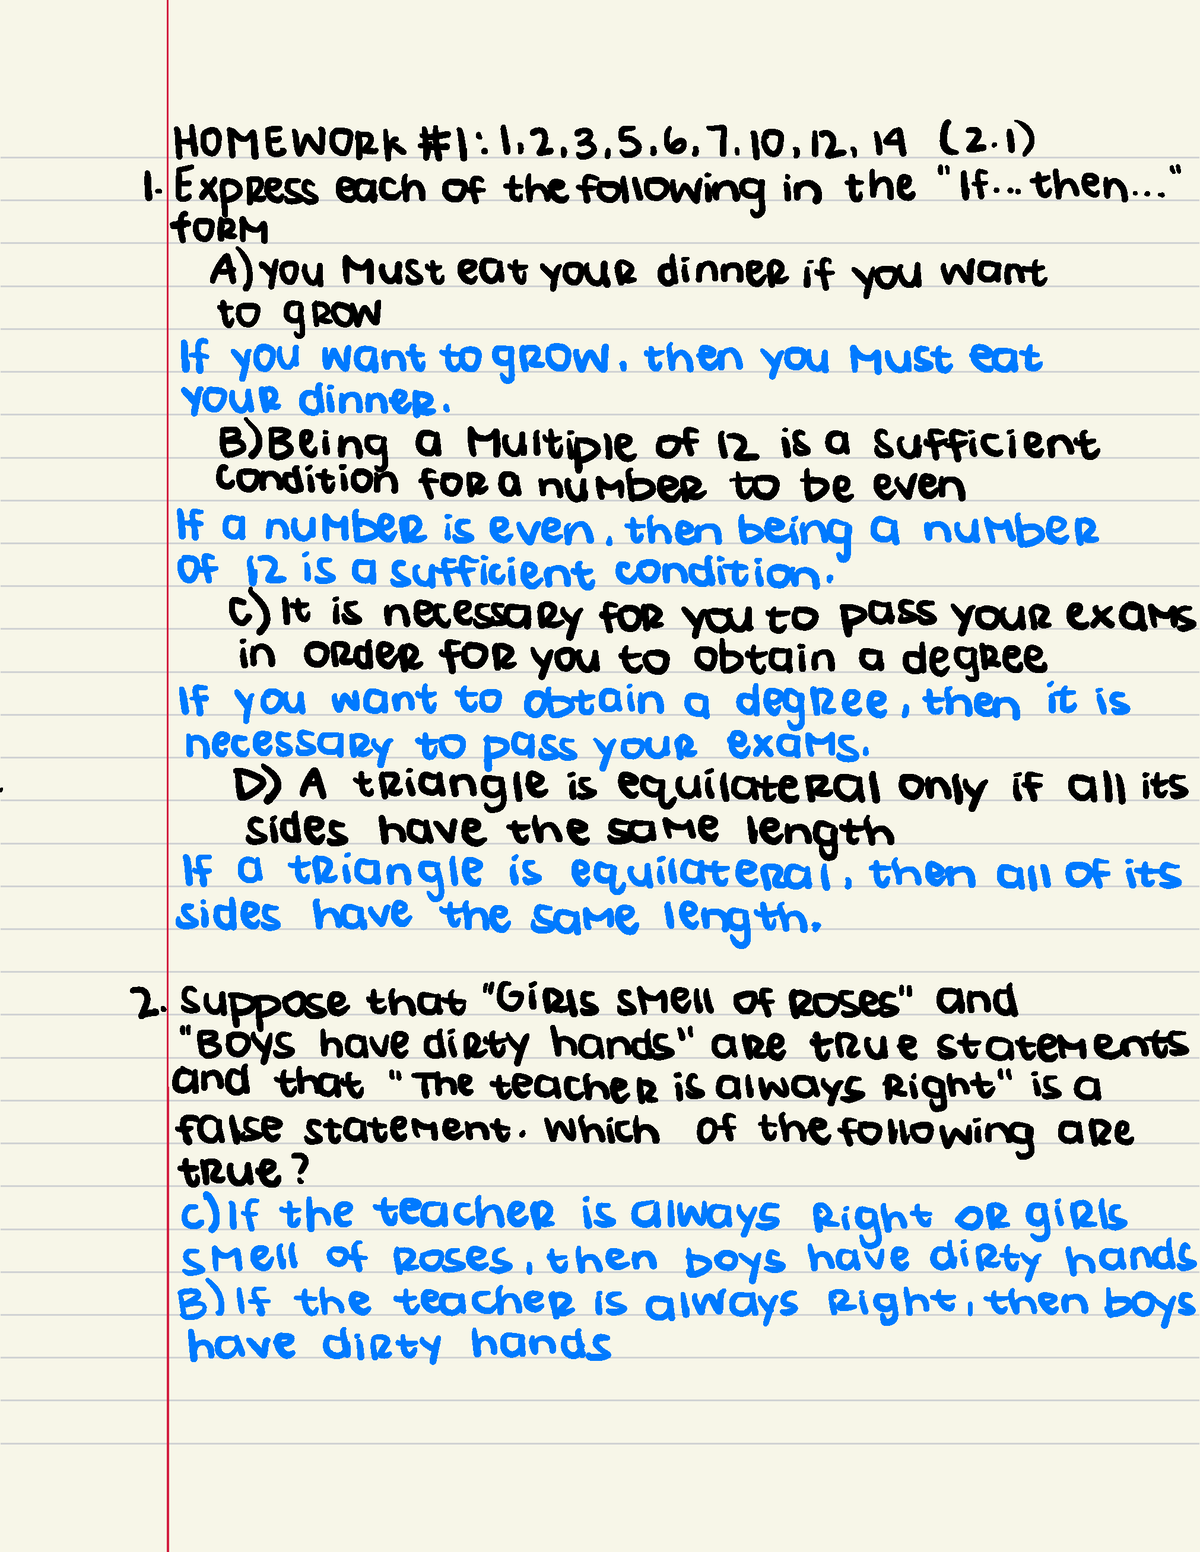 HOMEWORK #1: 1,2,3,5,6,7,10,12,14 (2.1)
1. Express each of the following in the "If...then..."
form
A) you must eat your dinner if you want
to grow
If you want to grow, then you must eat
your dinner.
B) Being a multiple of 12 is a sufficient
condition for a number to be even
If a number is even, then being a number
of 12 is a sufficient condition.
C) It is necessary for you to pass your exams
in order for you to obtain a degree
If you want to obtain a degree, then it is
necessary to pass your exams.
D) A triangle is equilateral only if all its
sides have the same length
If a triangle is equilateral, then all of its
sides have the same length.
2. Suppose that "Girls smell of roses" and
"Boys have dirty hands" are true statements
and that "The teacher is always right" is a
false statement. Which of the following are
true?
C) If the teacher is always right or girls
smell of roses, then boys have dirty hands
B) If the teacher is always right, then boys
have dirty hands